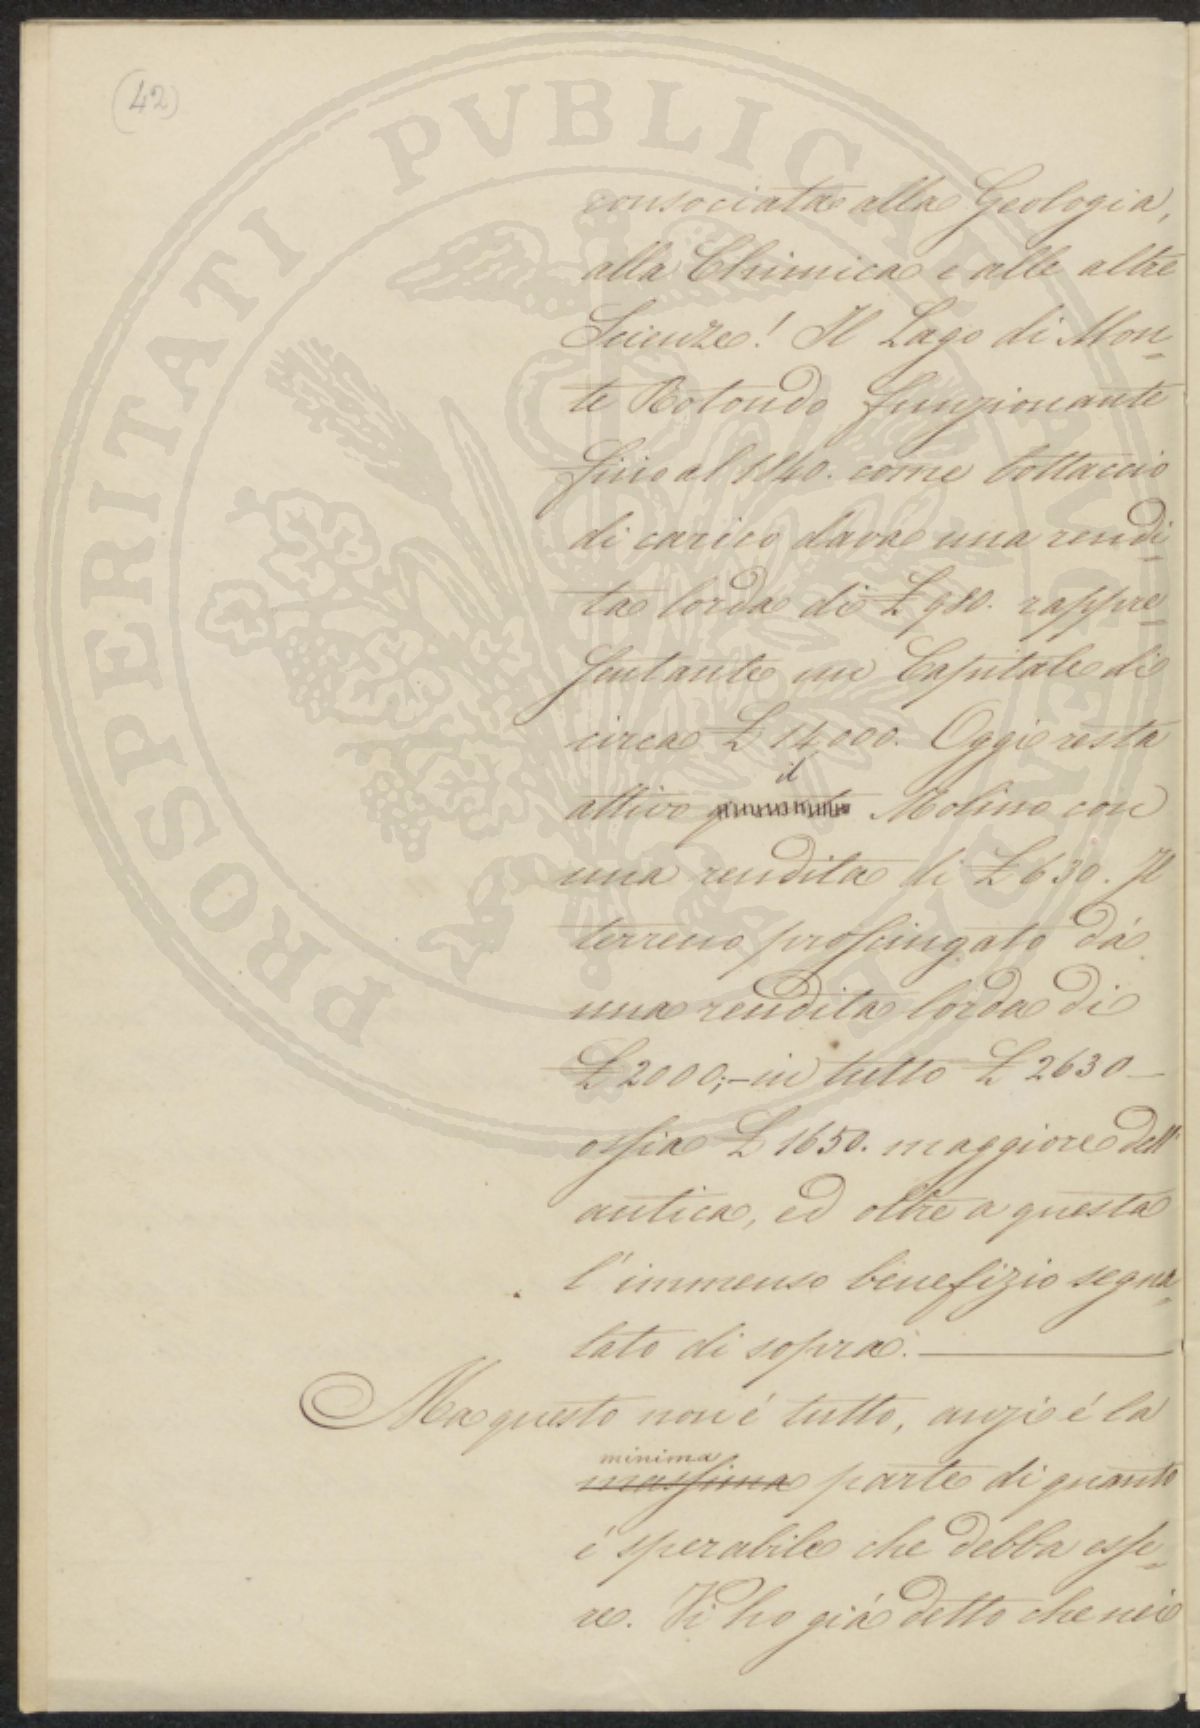 (42)
consociata alla Geologia,
alla Chimica e alle altre
Scienze! Il Lago di Mon-
te Rotondo funzionante
fino al 1840. come bottaccio
di carico dava una rendi-
ta lorda di £ 980. rappre-
sentante un Capitale di
circa £ 14,000. Oggi resta
il
attivo Molino con
una rendita di £ 630. Il
terreno prosciugato dá
una rendita lorda di
£ 2000;- in tutto £ 2630 -
ossia £ 1650. maggiore dell'
antica, ed oltre a questa
l'immenso benefizio segna-
lato di sopra.
Ma questo non é tutto, anzi é la
minima
massima parte di quanto
é sperabile che debba esse-
re. Vi ho giá detto che nei
PROSPERITATI PVBLICAE AVGENDAE